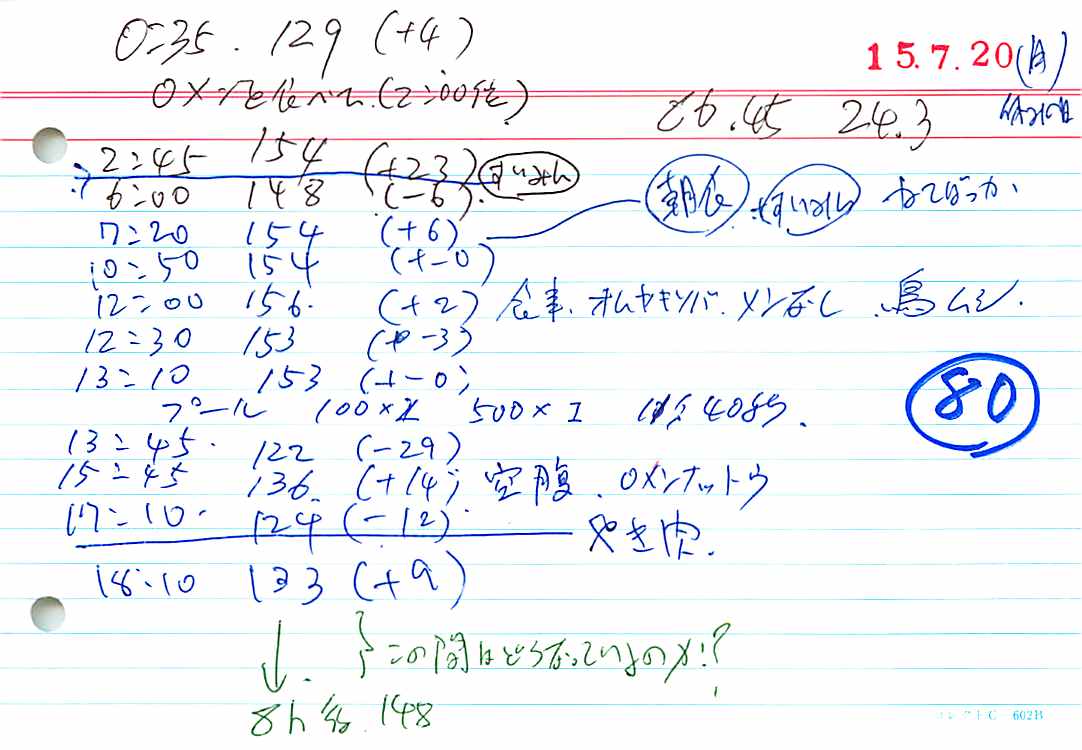 0:35. 129 (+4)
15.7.20(月)
0メンを食べた.(2:00頃)
26.45 24.3
2:45 154 (+23) すいみん
6:00 148 (-6)
朝食 すいみん ねてばっか.
7:20 154 (+6)
10:50 154 (+-0)
12:00 156. (+2) 食事. オムヤキソバ. メンなし. 鳥ムシ.
12:30 153 (-3)
13:10 153 (+-0)
80
プール 100×1 500×1 40分.
13:45. 122 (-29)
15:45 136. (+14) 空腹. 0メンナットウ
17:10. 124 (-12)
やき肉.
18:10 133 (+9)
↓ } この間はどうなっているのか!?
8h後. 148
コレクト C 602B